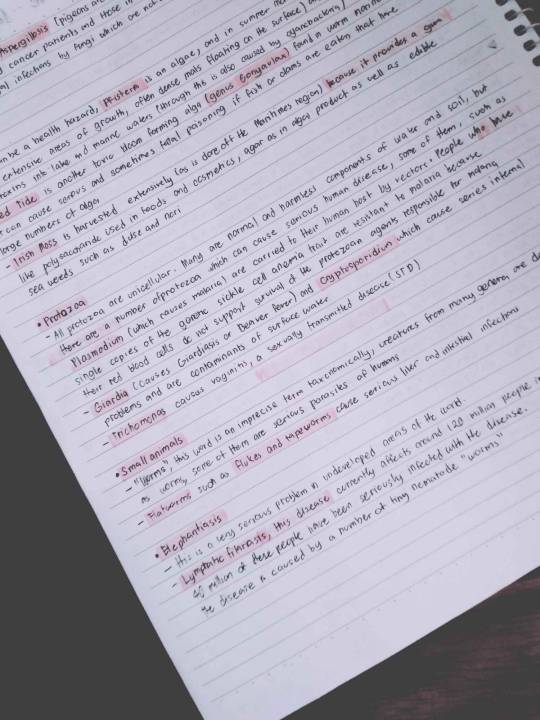 Aspergillosis (pigeons are
cancer patients and those in
infections by fungi which are not
be a health hazard, Pfisteria is an algae), and in summer
extensive areas of growth, often dense mats floating on the surface)
toxins into lake and marine waters (through this is also caused by cyanobacteria)
Red Tide is another toxic bloom forming alga (genus Gonyaulax) found in warm
can cause serious and sometimes fatal poisoning if fish or clams are eaten that have
large numbers of algae
- Irish Moss is harvested extensively (as is done off the Maritimes region) because it provides a gum
like polysaccharide used in foods and cosmetics, agar is an algal product as well as edible
sea weeds such as dulse and nori
• Protozoa
- All protozoa are unicellular. Many are normal and harmless components of water and soil, but
there are a number of protozoa which can cause serious human disease, some of them, such as
Plasmodium (which causes malaria) are carried to their human host by vectors. People who have
single copies of the genetic sickle cell anemia trait are resistant to malaria because
their red blood cells do not support survival of the protozoan agents responsible for malaria
- Giardia (causes Giardiasis or Beaver fever) and Cryptosporidium which cause serious internal
problems and are contaminants of surface water
- Trichomonas causes vaginitis, a sexually transmitted disease (STD)
• Small animals
- "Worms", this word is an imprecise term taxonomically, creatures from many genera are
as worms, some of them are serious parasites of humans
- Flatworms such as flukes and tapeworms cause serious liver and intestinal infections
• Elephantiasis
- this is a very serious problem in undeveloped areas of the world.
- Lymphatic filariasis, this disease currently affects around 120 million people
40 million of these people have been seriously infected with the disease.
the disease is caused by a number of tiny nematode "worms"